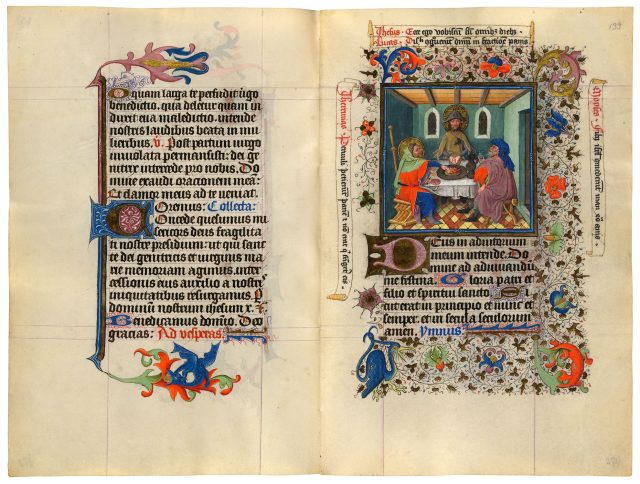 O quam larga te perfudit uirgo
benedictio, quia deletur quam in
duxit eua maledictio. intende
nostris laudibus beata in mu
lieribus. V. Post partum uirgo
inuiolata permansisti. dei ge
nitrix intercede pro nobis. Do
mine exaudi oracionem mea:
Et clamor meus ad te ueniat.
Oremus: Collecta:
Concede quesumus mi
sericors deus fragilita
ti nostre presidium: ut qui sanc
te dei genitricis et uirginis ma
rie memoriam agimus. inter
cessionis eius auxilio a nostris
iniquitatibus resurgamus. P
dominum nostrum ihesum x.
Benedicamus domino. Deo
gracias: Ad vesperas:
Ihesus · Ecce ego vobiscum sum omnibus diebus
Lucas · in fractione panis
Iheremias · Paruuli petierunt panem et non erat qui frangeret eis
Moyses ·
Deus in adiutorium
meum intende. Do
mine ad adiuuandum
me festina. Gloria patri et
filio et spiritui sancto
Sicut erat in principio et nunc et
semper. et in secula seculorum
amen. Ymnus: